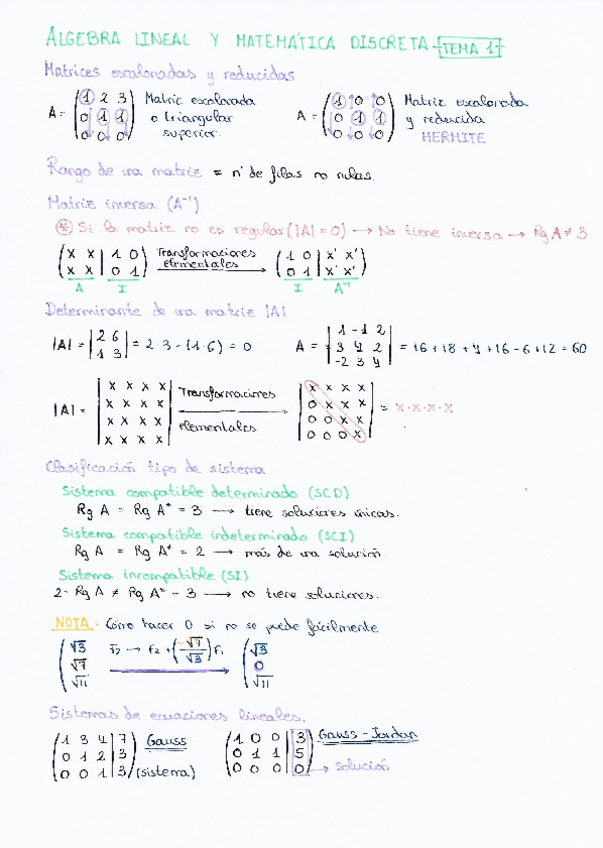 ALGEBRA LINEAL Y MATEMÁTICA DISCRETA - TEMA 1
Matrices escalonadas y reducidas
A = (1 2 3 / 0 1 1 / 0 0 0) Matriz escalonada o triangular superior. A = (1 0 0 / 0 1 1 / 0 0 0) Matriz escalonada y reducida HERMITE
Rango de una matriz = nº de filas no nulas.
Matriz inversa (A⁻¹)
* Si la matriz no es regular (|A| = 0) → No tiene inversa → Rg A ≠ 3
(x x | 1 0 / x x | 0 1) Transformaciones elementales → (1 0 | x' x' / 0 1 | x' x')
A I I A⁻¹
Determinante de una matriz |A|
|A| = |2 6 / 1 3| = 2·3 - (1·6) = 0 A = |1 -1 2 / 3 4 2 / -2 3 4| = 16 + 18 + 4 + 16 - 6 + 12 = 60
|A| = |x x x x / x x x x / x x x x / x x x x| Transformaciones elementales → |x x x x / 0 x x x / 0 0 x x / 0 0 0 x| = x·x·x·x
Clasificación tipo de sistema
Sistema compatible determinado (SCD)
Rg A = Rg A* = 3 → tiene soluciones únicas.
Sistema compatible indeterminado (SCI)
Rg A = Rg A* = 2 → más de una solución.
Sistema incompatible (SI)
2 - Rg A ≠ Rg A* - 3 → no tiene soluciones.
NOTA: Cómo hacer 0 si no se puede fácilmente
(√3 / √7 / √11 F2 → F2 + (-√7/√3) F1 (√3 / 0 / √11
Sistemas de ecuaciones lineales.
(1 3 4 | 7 / 0 1 2 | 3 / 0 0 1 | 3) Gauss (sistema) (1 0 0 | 3 / 0 1 1 | 5 / 0 0 0 | 0) Gauss - Jordan → solución